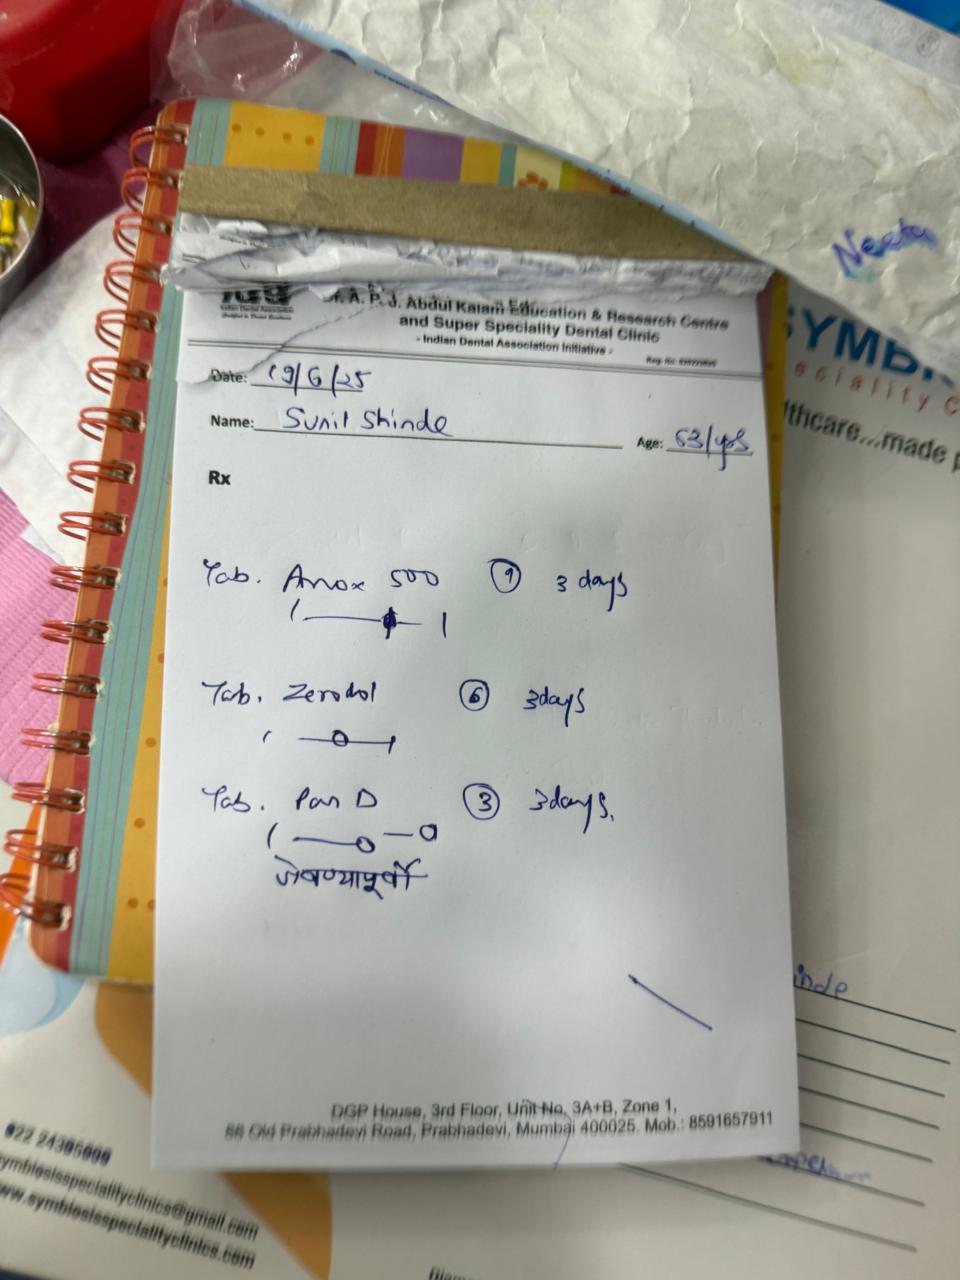 Neeta
Dr. A. P. J. Abdul Kalam Education & Research Centre
and Super Speciality Dental Clinic
- Indian Dental Association Initiative -
Indian Dental Association
Date: 19/6/25
Name: Sunil Shinde
Age: 63/yrs
Rx
Tab. Amox 500 9 3 days
1 — 1 — 1
Tab. Zerodol 6 3days
1 — 0 — 1
Tab. Pan D 3 3days.
1 — 0 — 0
जेवण्यापूर्वी
DGP House, 3rd Floor, Unit No. 3A+B, Zone 1,
88 Old Prabhadevi Road, Prabhadevi, Mumbai 400025. Mob.: 8591657911
SYMB
eciality C
lthcare...made p
inde
022 24395009
ymbiosisspecialityclinics@gmail.com
www.symbiosisspecialityclinics.com